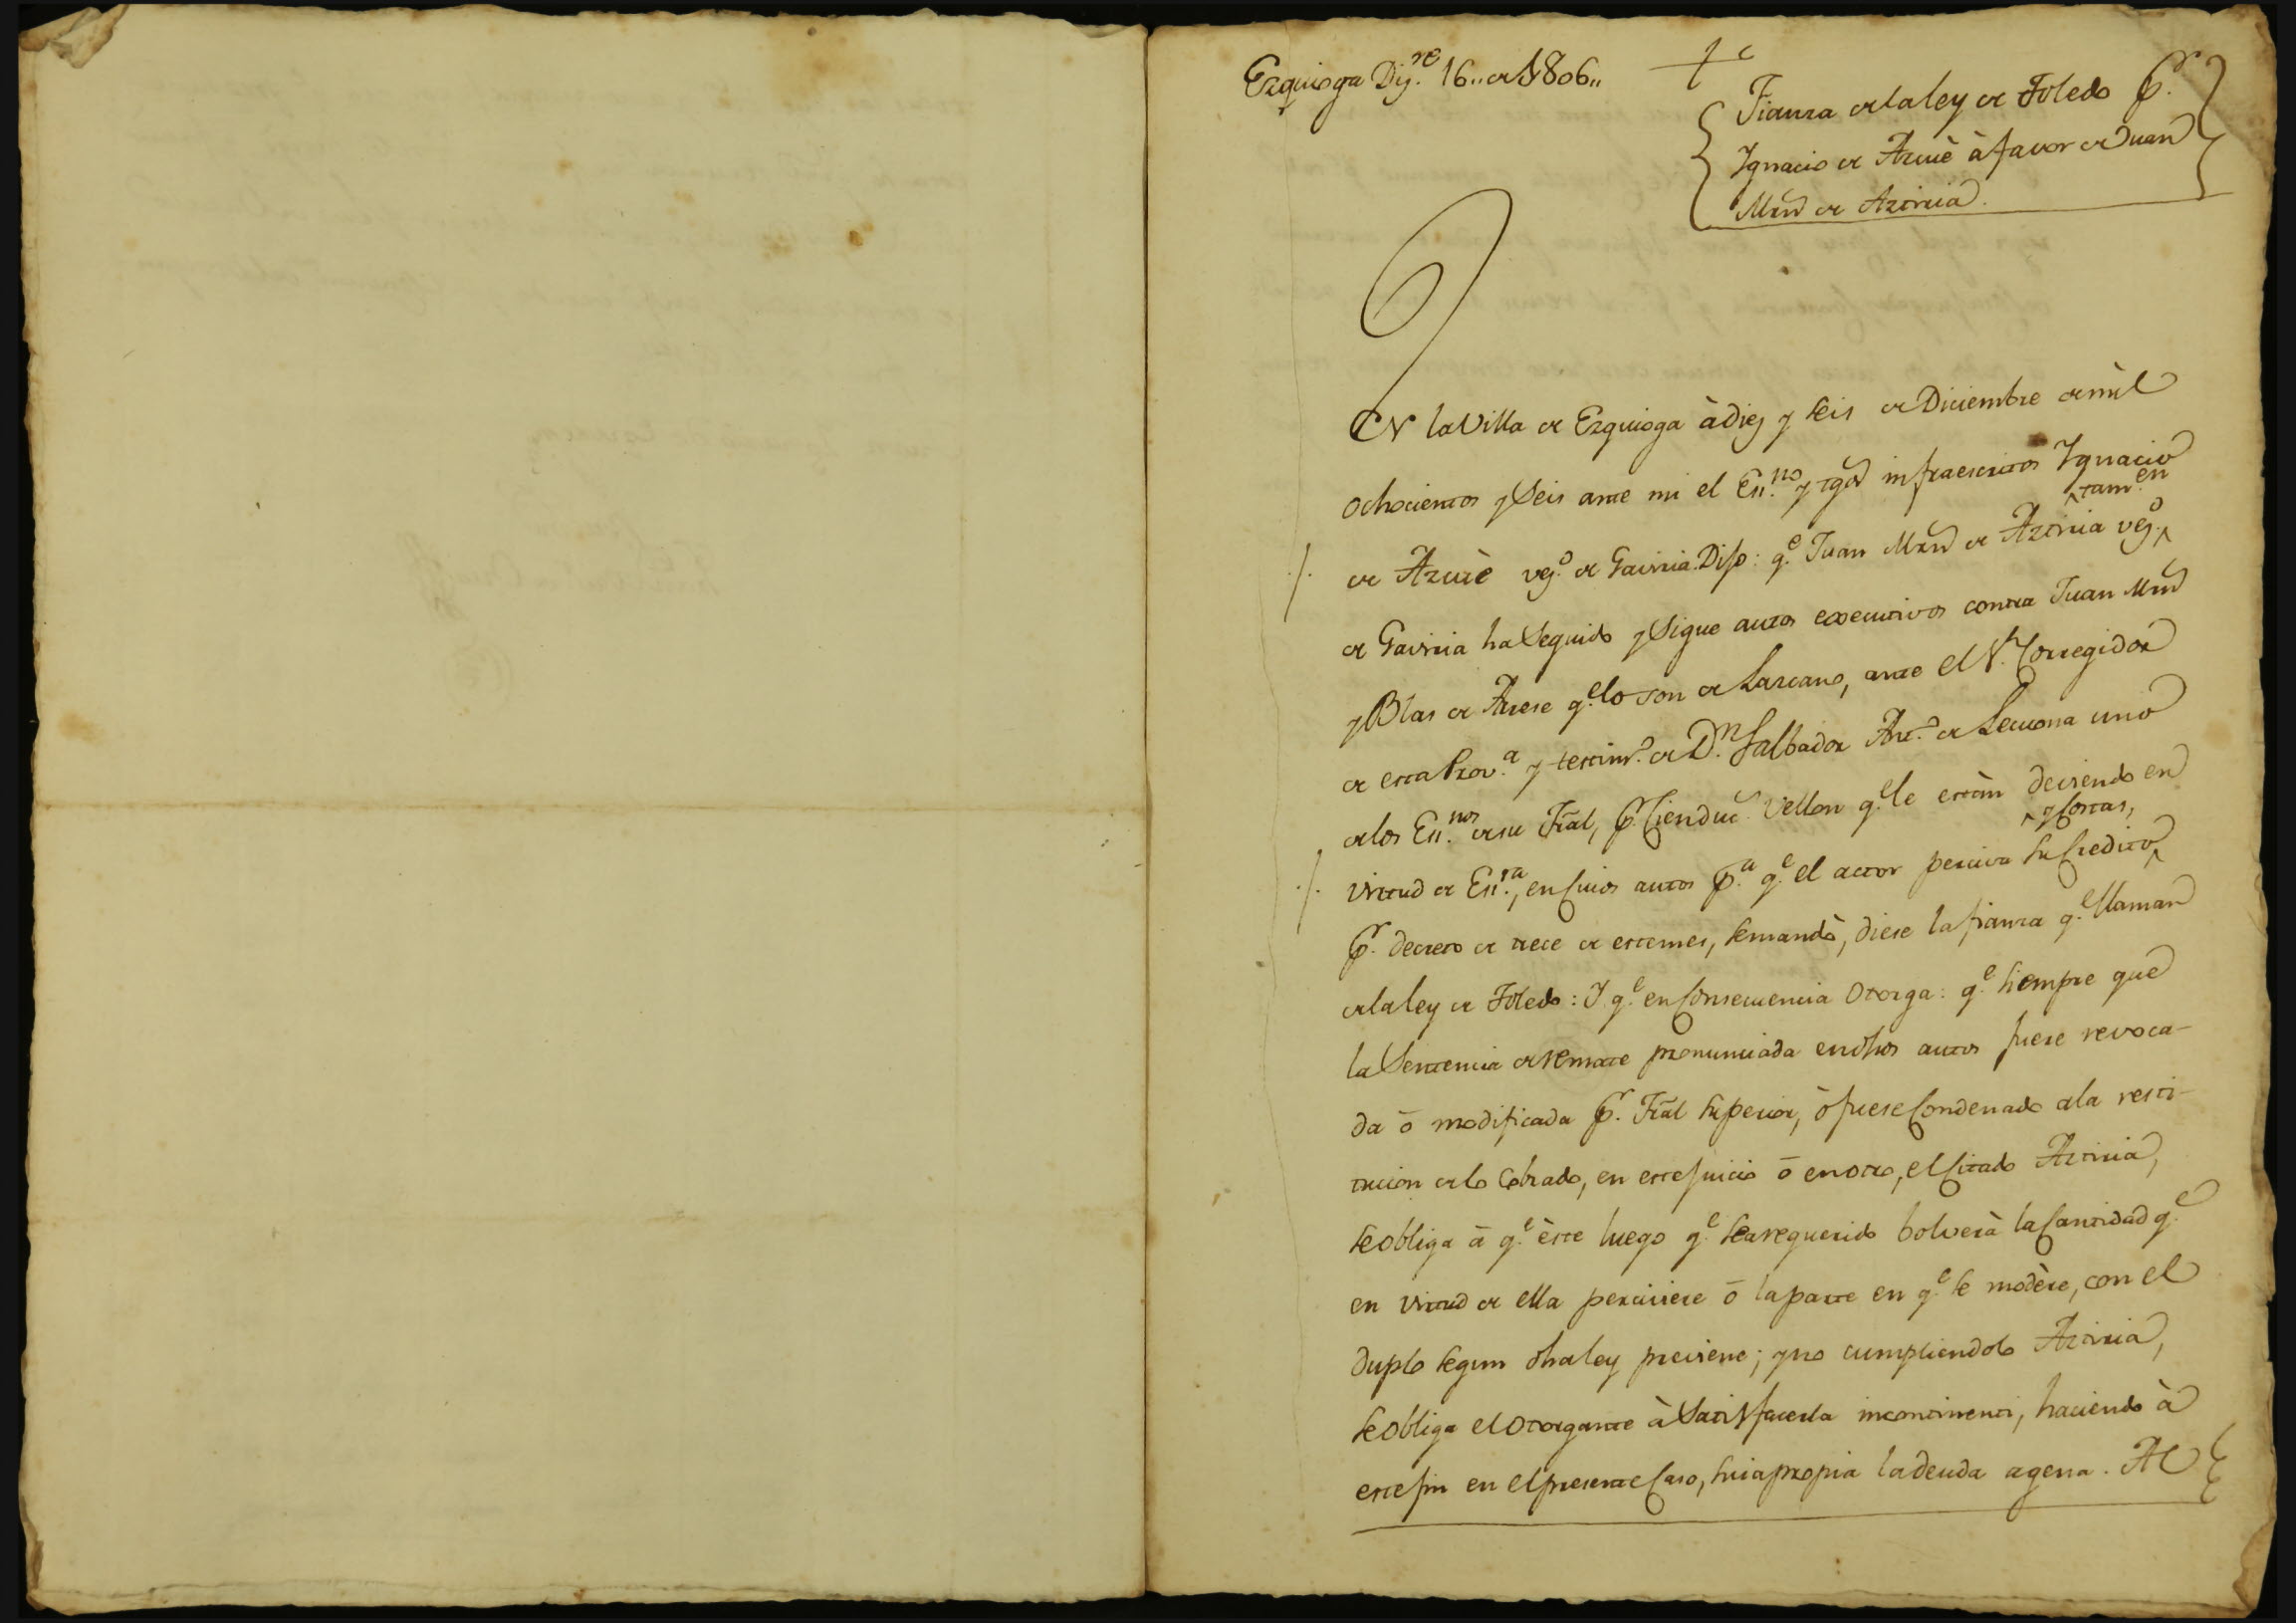 Ezquioga Diz.re 16,, de 1806,,
Fianza de la ley de Toledo p.r
Ygnacio de Azcuè à favor de Juan
Mrn de Aztiria.
EN la Villa de Ezquioga à diez y seis de Diciembre de mìl
ochocientos y Seis ante mi el Ess.no y tgõs infraescritos Ygnacio
de Azcuè vez.o de Gaviria Dijo: q.e Juan Mrn de Aztiria vez.o ^tam.en
de Gaviria ha Seguido y Sigue autos executivos contra Juan Mrn
y Blas de Arrese q.e lo son de Lazcano, ante el S.r Corregidor
de esta Prov.a y testim.o de D.n Salbador Ant.o de Lecuona uno
de los Ess.nos de su Tral, p.r Cien duc.s vellon q.e le estàn deviendo en
virtud de Ess.ra, en cuios autos p.a q.e el actor perciva su Credito ^y Costas,
p.r decreto de trece de este mes, se mandò, diese la fianza q.e llaman
de la ley de Toledo: Y q.e en Consecuencia Otorga: q.e siempre que
la Sentencia de remate pronunciada en dhos autos fuese revoca-
da ō modificada p.r Tral superior, ò fuese Condenado a la resti-
tucion de lo Cobrado, en este juicio ō en otro, el Citado Aztiria,
se obliga ā q.e èste luego q.e sea requerido bolverà la Cantidad q.e
en virtud de ella perciviere ō la parte en q.e se modère, con el
duplo segun dha ley previene; y no cumpliendolo Aztiria,
se obliga el Otorgante à Satisfacerla incontinenti, haciendo à
este fin en el presente Caso, suia propia la deuda agena. Al